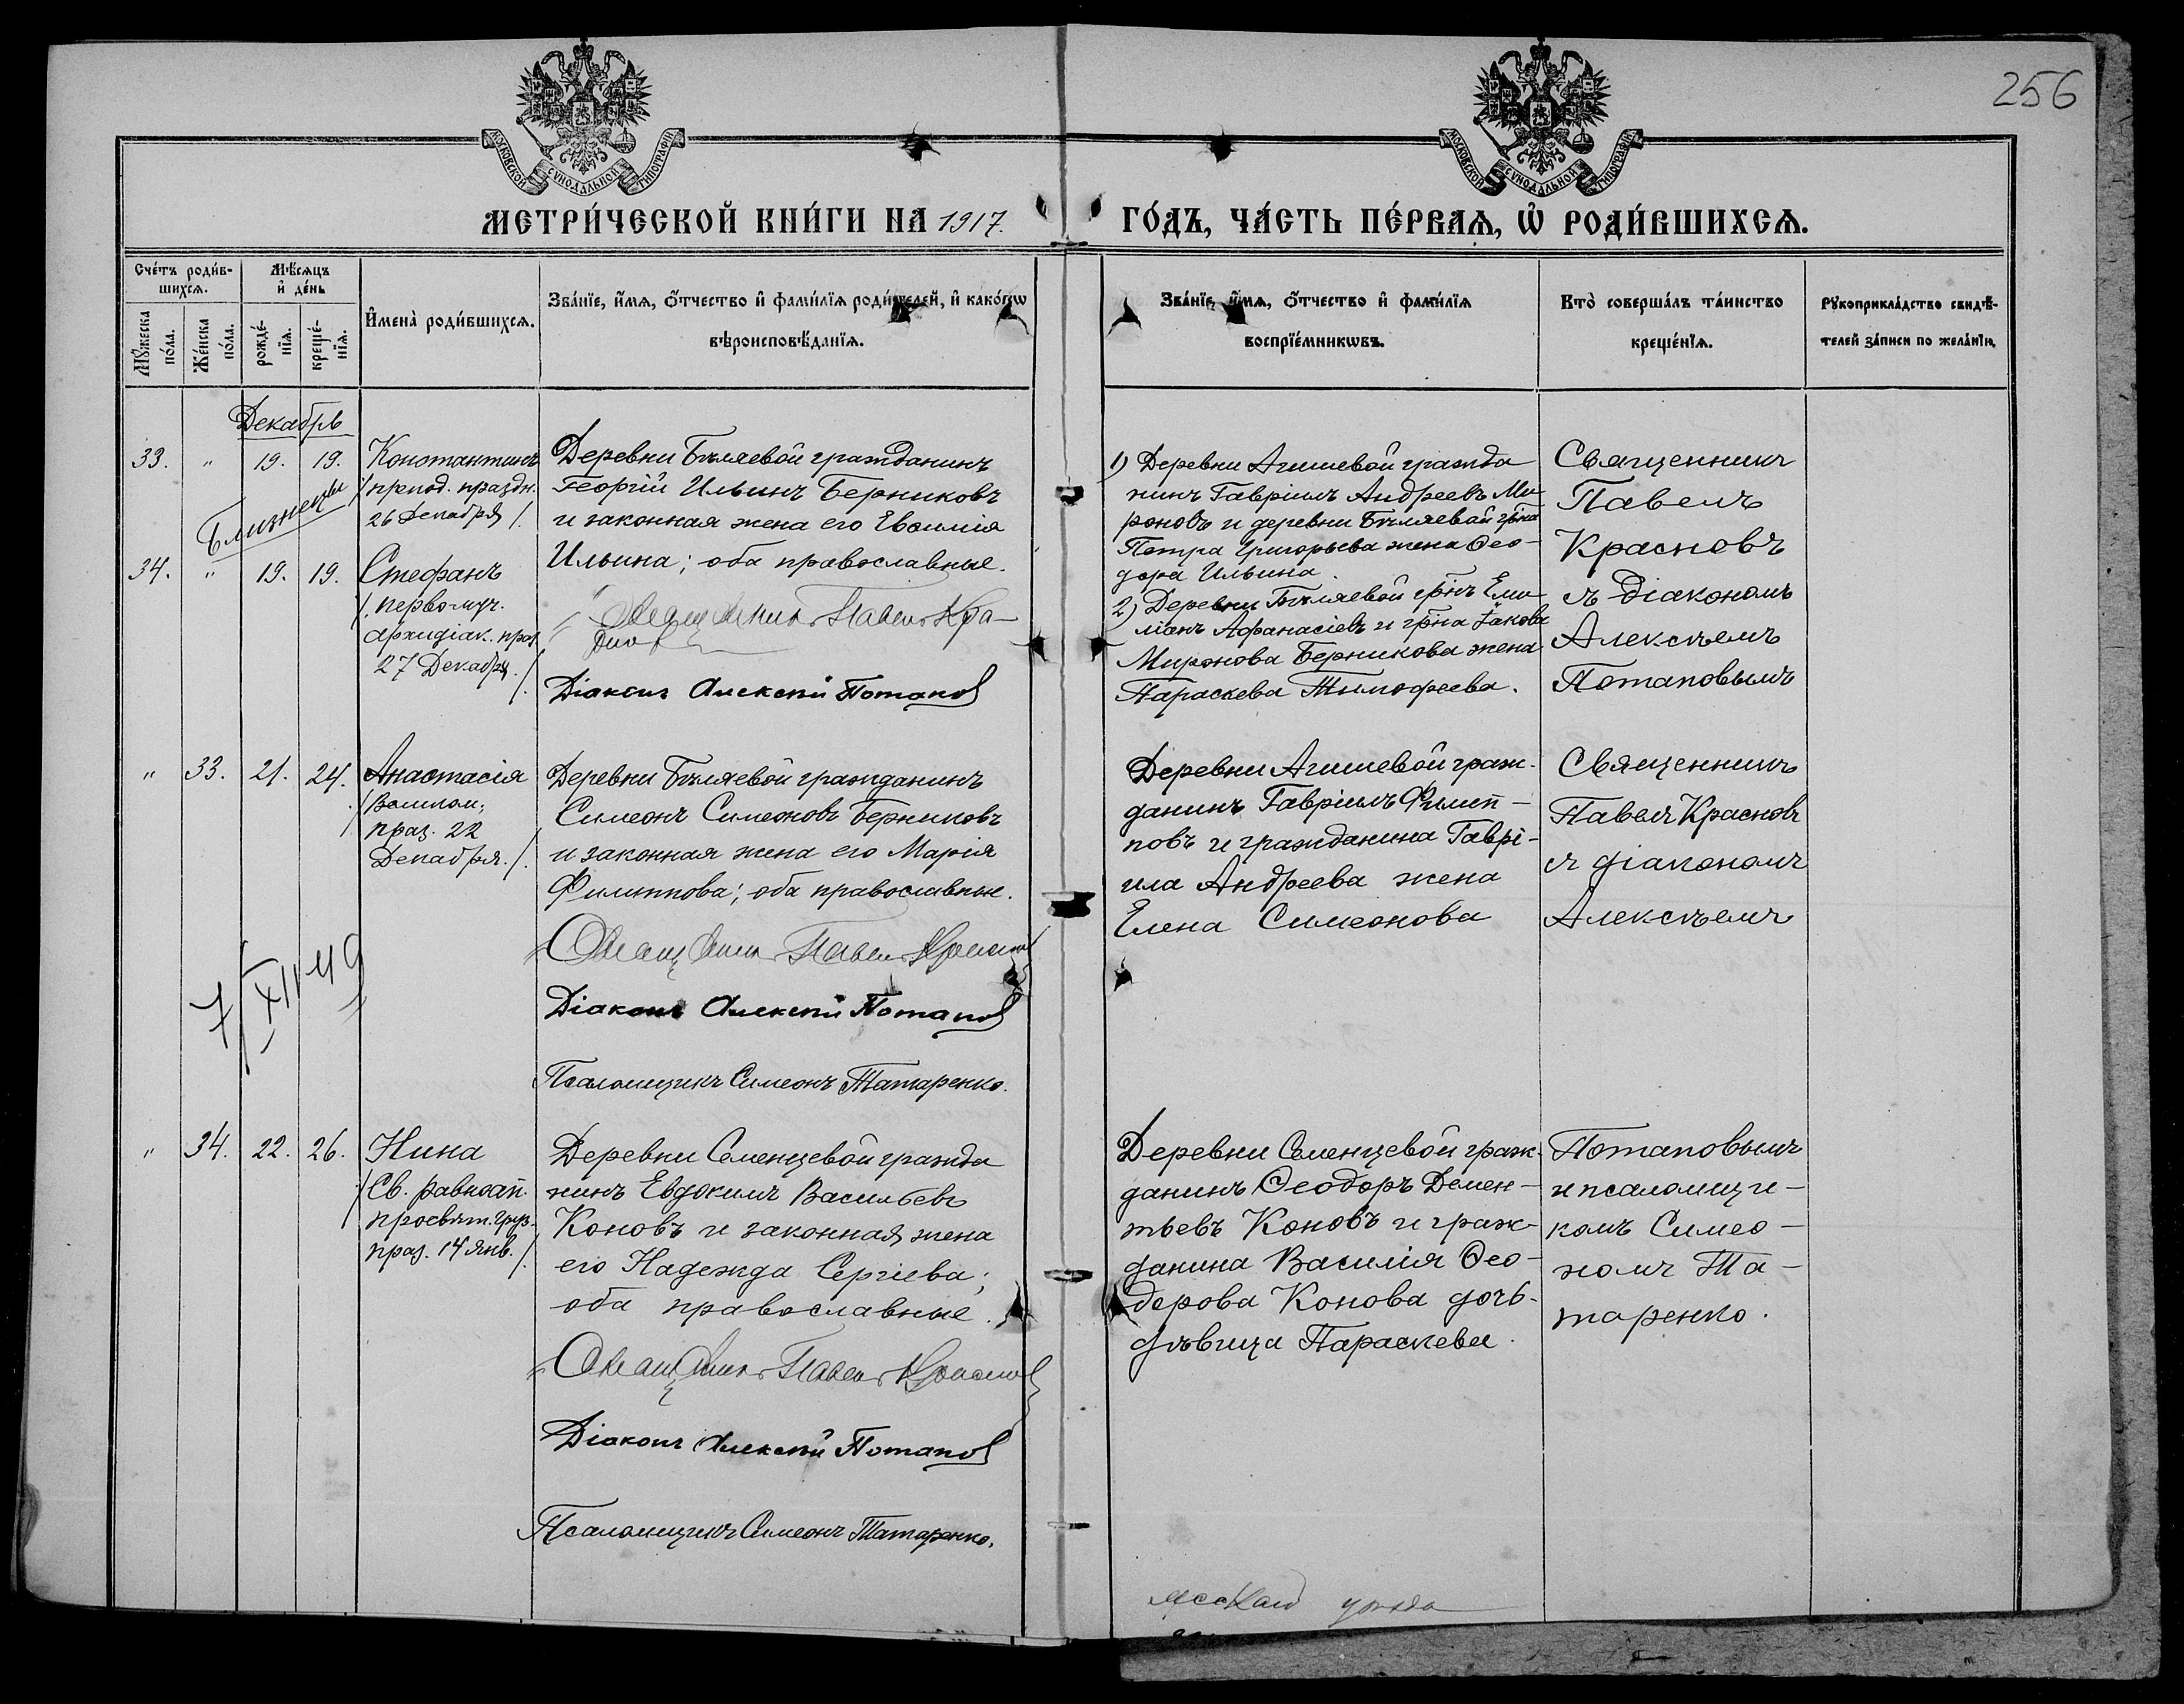 256
МОСКОВСКОЙ СУНОДАЛЬНОЙ ТИПОГРАФІИ
МОСКОВСКОЙ СУНОДАЛЬНОЙ ТИПОГРАФІИ
МЕТРИ́ЧЕСКОЙ КНИ́ГИ НА 1917.
ГО́ДЪ, ЧА́СТЬ ПЕ́РВАѦ, Ѿ РОДИ́ВШИХСѦ.
Сче́тъ роди́в-
шихсѧ.
Мѣ́сѧцъ
и҆ де́нь
Мꙋ́жеска
по́ла.
Же́нска
по́ла.
рожде́-
нїѧ.
креще́-
нїѧ.
И҆мена̀ роди́вшихсѧ.
Зва́нїе, и҆́мѧ, ѻ҆́тчество и҆ фами́лїѧ роди́телей, и҆ како́гѡ
вѣроисповѣ́данїѧ.
Зва́нїе, и҆́мѧ, ѻ҆́тчество и҆ фами́лїѧ
воспрїе́мникѡвъ.
Кто̀ соверша́лъ та́инство
креще́нїѧ.
Рꙋкоприкла́дство свидѣ́-
телей за́писи по жела́нїю.
Декабрь
33. " 19. 19. Константинъ
/препод. праздн.
26 Декабря/.
Близнецы
34. " 19. 19. Стефанъ
/. первомуч.
архидіак. праз.
27 Декабря./.
Деревни Бѣляевой гражданинъ
Георгій Ильинъ Берниковъ
и законная жена его Евѳимія
Ильина; оба православные.
Священникъ Павелъ Кра-
сновъ
Діаконъ Алексѣй Потаповъ
1) Деревни Агишевой гражда
нинъ Гавріилъ Андреевъ Ми
роновъ и деревни Бѣляевой гр̃на
Петра Григорьева жена Ѳео-
дора Ильина.
2) Деревни Бѣляевой гр̃нъ Еми
ліанъ Афанасіевъ и гр̃на Іакова
Миронова Берникова жена
Параскева Тимофеева.
Священникъ
Павелъ
Красновъ
съ діакономъ
Алексѣемъ
Потаповымъ
" 33. 21. 24. Анастасія
/Великом.
праз. 22
Декабря./.
Деревни Бѣляевой гражданинъ
Симеонъ Симеоновъ Берниковъ
и законная жена его Марія
Филиппова; оба православные.
Священникъ Павелъ Красновъ
Діаконъ Алексѣй Потаповъ
Псаломщикъ Симеонъ Татаренко.
7/XII 49
Деревни Агишевой граж-
данинъ Гавріилъ Филип-
повъ и гражданина Гаврі-
ила Андреева жена
Елена Симеонова
Священникъ
Павелъ Красновъ
съ діакономъ
Алексѣемъ
" 34. 22. 26. Нина
/Св. равноап.
просвѣт. груз.
праз. 14 янв./.
Деревни Семенцевой гражда
нинъ Евдокимъ Васильевъ
Коновъ и законная жена
его Надежда Сергіева;
оба православные.
Священникъ Павелъ Красновъ
Діаконъ Алексѣй Потаповъ
Псаломщикъ Симеонъ Татаренко.
Деревни Семенцевой граж-
данинъ Ѳеодоръ Демен-
тьевъ Коновъ и граж-
данина Василія Ѳео-
дорова Конова дочь-
дѣвица Параскева.
Потаповымъ
и псаломщи-
комъ Симео-
номъ Та-
таренко.
уѣзда